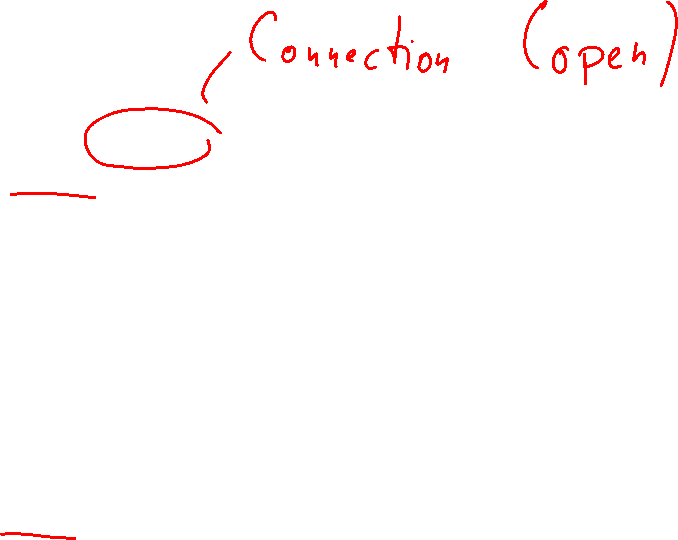 Connection (open)